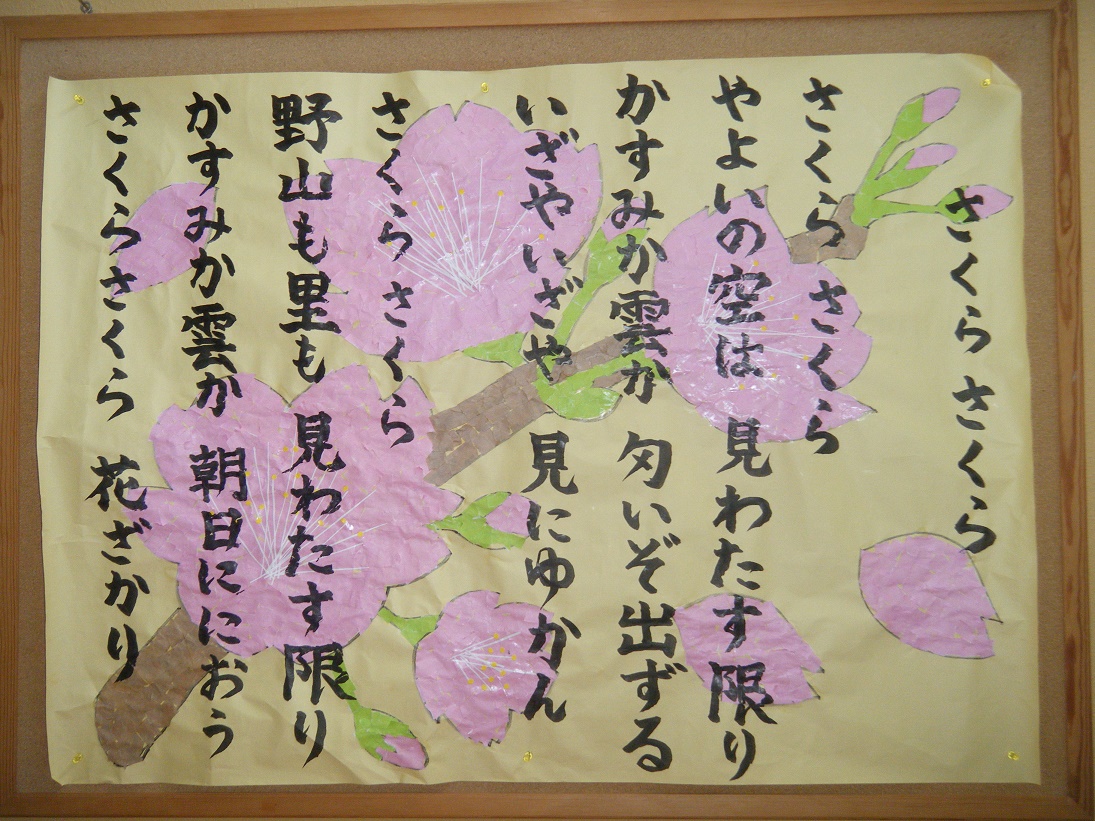 さくら さくら
さくら さくら
やよいの空は 見わたす限り
かすみか雲か 匂いぞ出ずる
いざやいざや 見にゆかん
さくら さくら
野山も里も 見わたす限り
かすみか雲か 朝日ににおう
さくらさくら 花ざかり